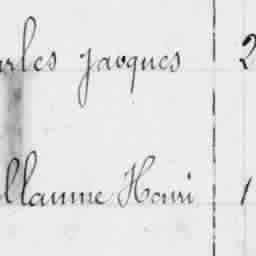 arles Jacques 2
illaume Henri 1